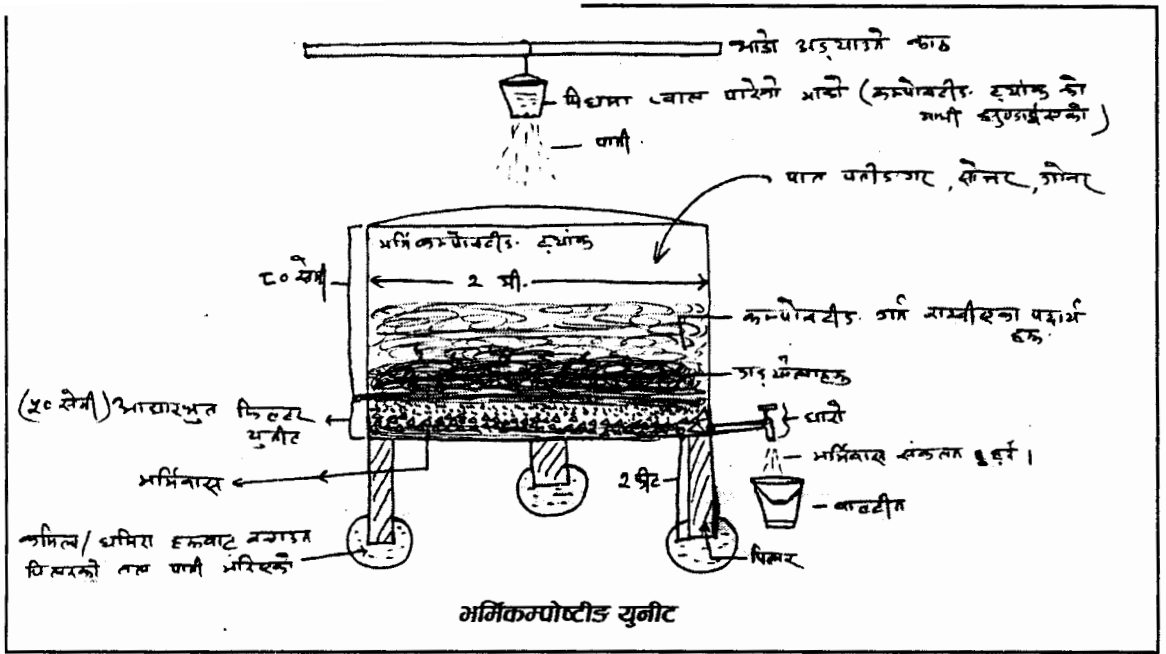 भाडो अड्याउने काठ
पिंधमा प्वाल पारेको भाडो (कम्पोष्टीङ ट्यांक को
माथी झुण्डाईएको)
पानी
पात पतीङगर, सोत्तर, गोबर
भर्मिकम्पोष्टीङ ट्यांक
८० सेमी
२ मी.
कम्पोष्टीङ गर्न राखीएका पदार्थ
हरू
गड्यौलाहरू
(५० सेमी) आधारभुत फिल्टर
युनीट
धारो
भर्मिवास संकलन हुदै।
भर्मिवास
२ फीट
बाल्टीन
कमिला/धमिरा हरूबाट बचाउन
पिलरको तल पानी भरिएको
पिलर
भर्मिकम्पोष्टीङ युनीट